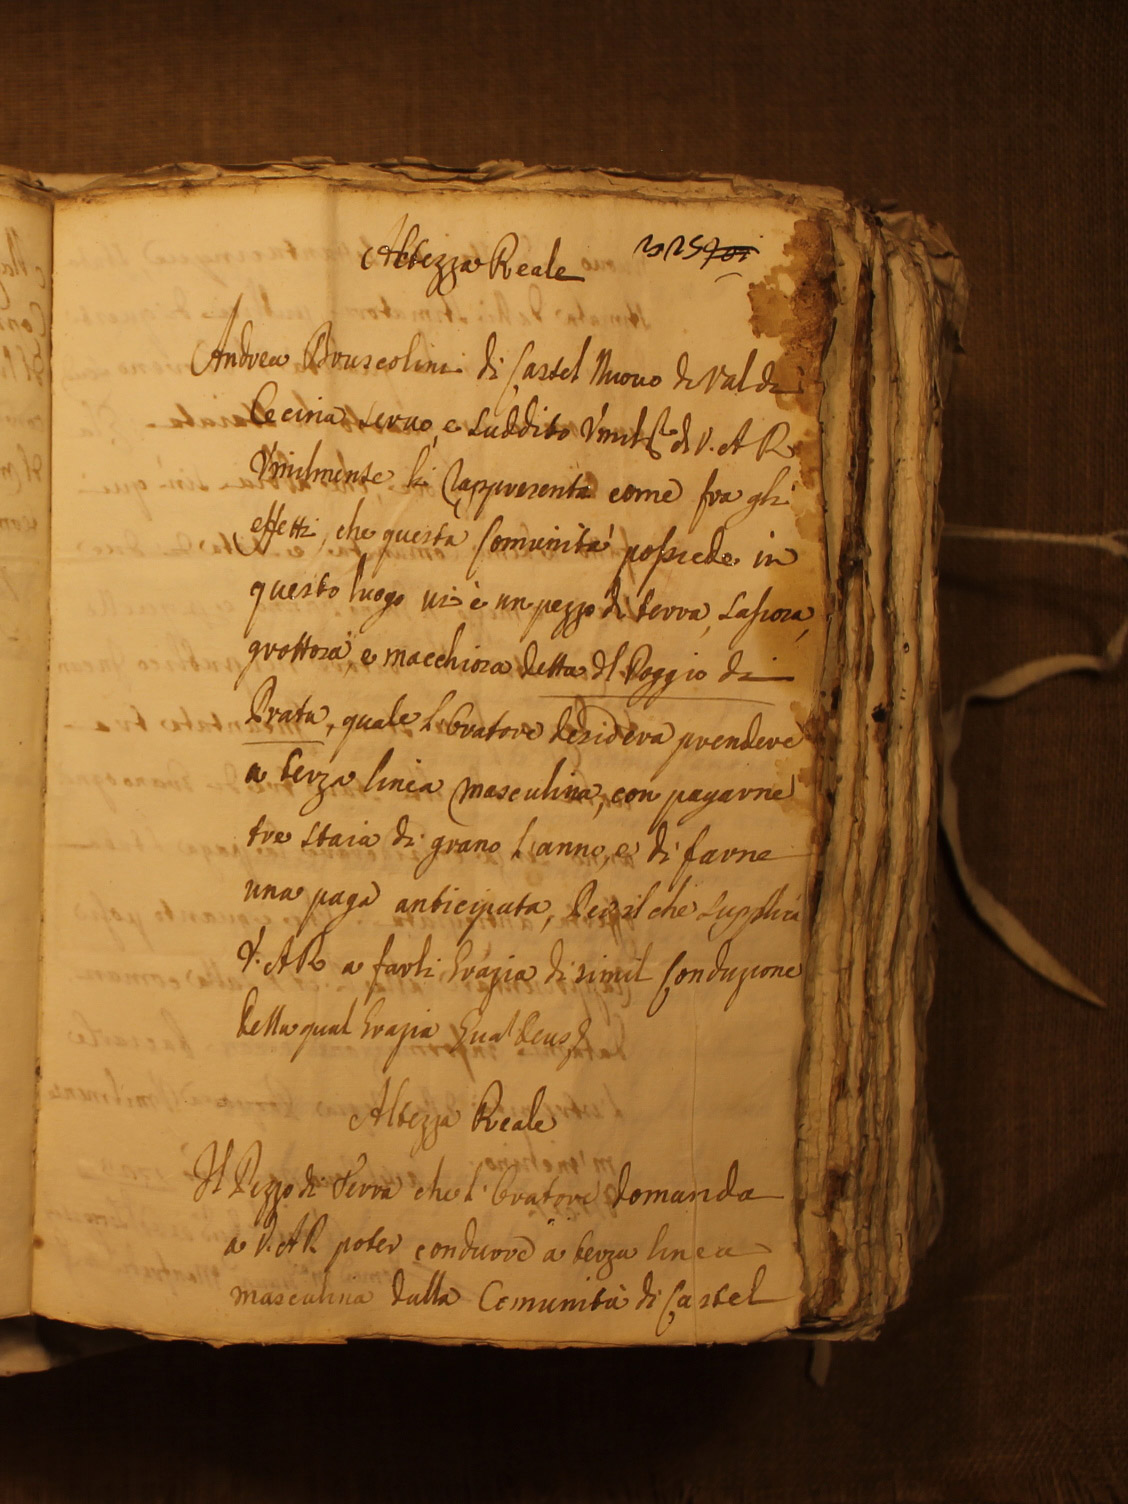 Altezza Reale
325
Andrea Bruscolini di Castel Nuovo di Val di
Cecina servo, e suddito Umil.mo di V. A R
Umilmente li rappresenta come fra gli
effetti, che questa Comunità possiede in
questo luogo vi è un pezzo di terra, sassosa,
grottosa, e macchiosa detta Il Poggio di
Prata, quale l'Oratore desidera prendere
a terza linea masculina, con pagarne
tre staia di grano l'anno, e di farne
una paga anticipata, Per il che supplica
V. A R a farli Grazia di simil Conduzione
della qual Grazia Deus
Altezza Reale
Il Pezzo di Terra che l'Oratore domanda
a V. A R. poter condurre a terza linea
masculina dalla Comunità di Castel